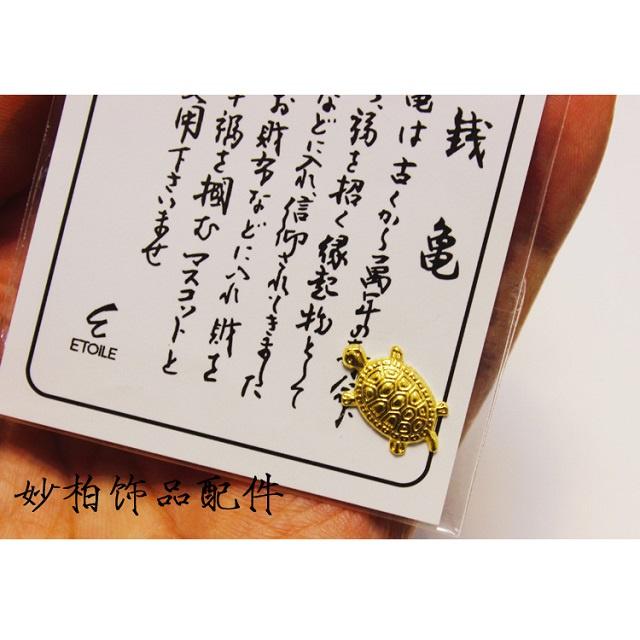 銭亀
亀は古くから萬年の
福を招く縁起物として
などに入れ、信仰されてきました
お財布などに入れ財を
幸福を掴むマスコットと
用下さいませ
ETOILE
妙柏饰品配件